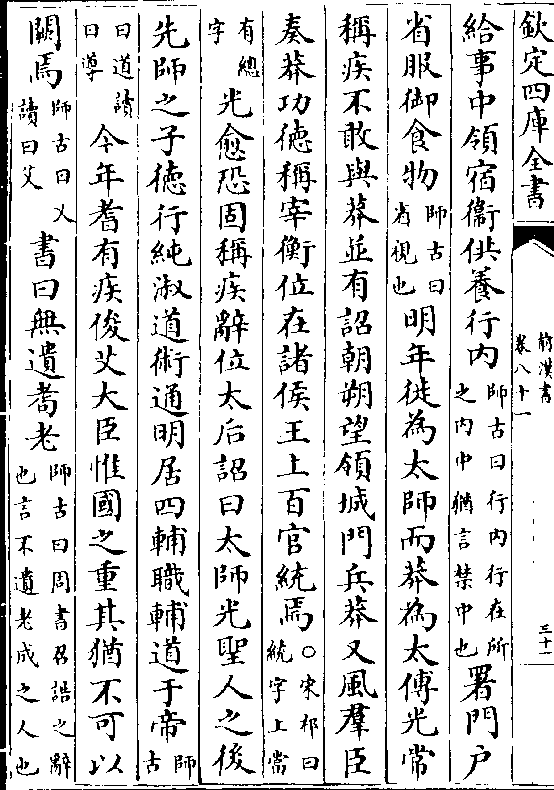 欽定四庫全書
前漢書
卷八十一
三十一
給事中領宿衞供養行内師古曰行内行在所之内中猶言禁中也署門户
省服御食物師古曰省視也明年徙為太師而莽為太傅光常
稱疾不敢與莽並有詔朝朔望領城門兵莽又風羣臣
奏莽功徳稱宰衡位在諸侯王上百官統焉○宋祁曰統字上當
有總字光愈恐固稱疾辭位太后詔曰太師光聖人之後
先師之子徳行純淑道術通明居四輔職輔道于帝師古
曰道讀曰導今年耆有疾俊艾大臣惟國之重其猶不可以
闕焉師古曰乂讀曰艾書曰無遺耇老師古曰周書召誥之辭也言不遺老成之人也